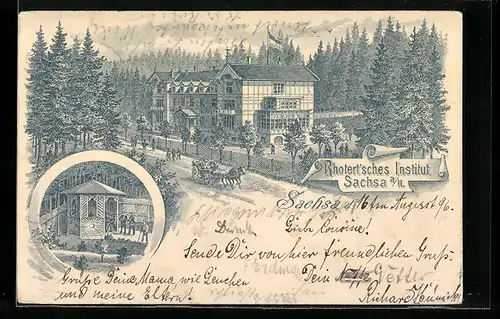 Rhotert'sches Institut
Sachsa a/H.
Sachsa, d. 16ten August 96.
Liebe Cousine!
Sende Dir von hier freundlichen Gruß.
Dein Vetter
Grüße Deine Mama, wie Lenchen
und meine Eltern!
Richard